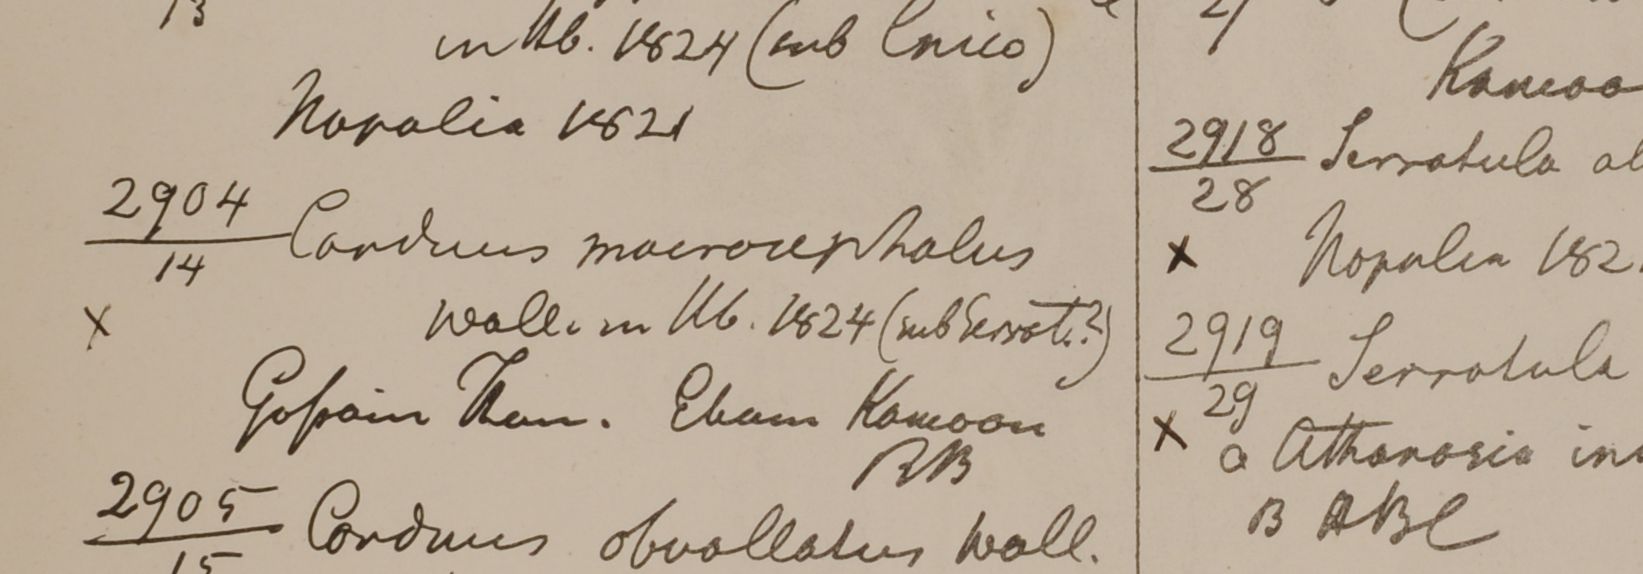 13
in Hb. 1824 (sub Cnico)
Napalia 1821
2904
14
Carduus macrocephalus
x
Wall. in Hb. 1824 (sub Serrat.?)
Gossain Than. Kamaon
RB
2905
15
Carduus obvallatus Wall.
Kamaon
2918
28
Serratula al
x
Napalia 182
2919
29
Serratula
x
a Athanasia in
B HBC